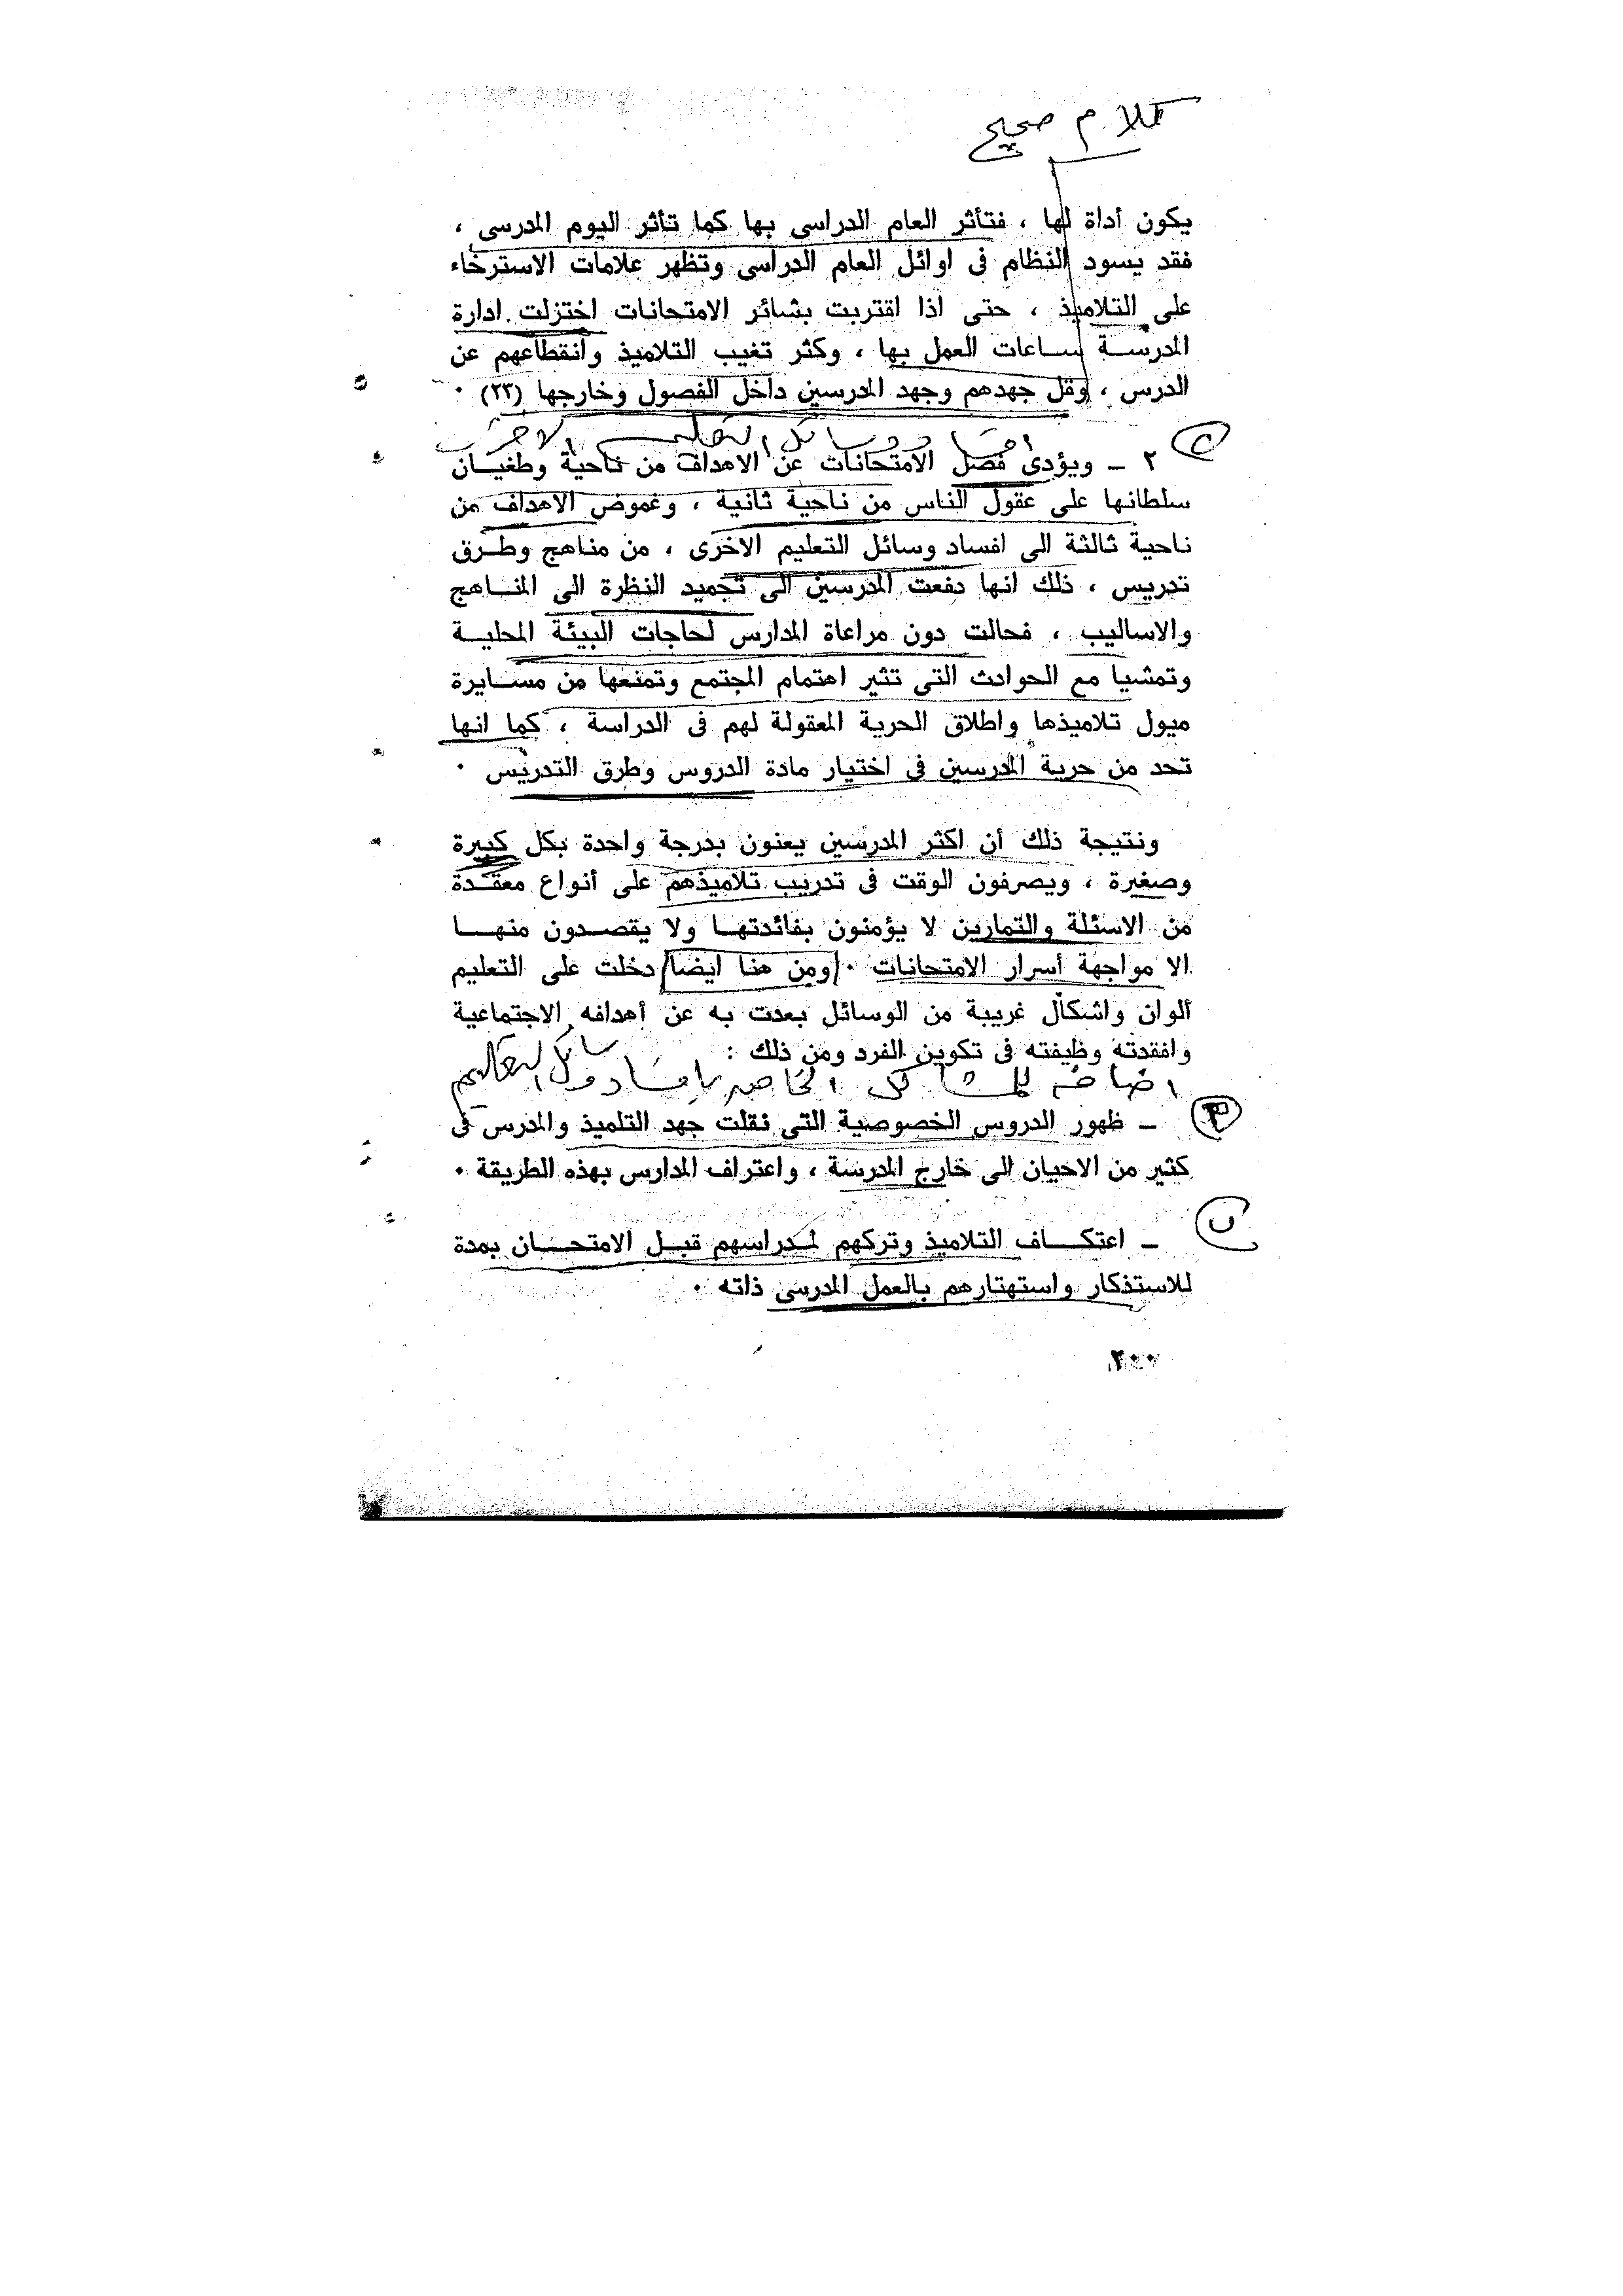 كلام صحيح
يكون أداة لها ، فتأثر العام الدراسى بها كما تأثر اليوم المدرسى ،
فقد يسود النظام فى اوائل العام الدراسى وتظهر علامات الاسترخاء
على التلاميذ ، حتى اذا اقتربت بشائر الامتحانات اختزلت ادارة
المدرسة ساعات العمل بها ، وكثر تغيب التلاميذ وانقطاعهم عن
الدرس ، وقل جهدهم وجهد المدرسين داخل الفصول وخارجها (٢٣) ٠
وسائل التعليم الاخرى
٢ - ويؤدى فصل الامتحانات عن الاهداف من ناحية وطغيان
سلطانها على عقول الناس من ناحية ثانية ، وغموض الاهداف من
ناحية ثالثة الى افساد وسائل التعليم الاخرى ، من مناهج وطرق
تدريس ، ذلك انها دفعت المدرسين الى تجميد النظرة الى المناهج
والاساليب ، فحالت دون مراعاة المدارس لحاجات البيئة المحلية
وتمشيا مع الحوادث التى تثير اهتمام المجتمع وتمنعها من مسايرة
ميول تلاميذها واطلاق الحرية المعقولة لهم فى الدراسة ، كما انها
تحد من حرية المدرسين فى اختيار مادة الدروس وطرق التدريس ٠
ونتيجة ذلك أن اكثر المدرسين يعنون بدرجة واحدة بكل كبيرة
وصغيرة ، ويصرفون الوقت فى تدريب تلاميذهم على أنواع معقدة
من الاسئلة والتمارين لا يؤمنون بفائدتها ولا يقصدون منها
الا مواجهة أسرار الامتحانات ٠ ومن هنا ايضا دخلت على التعليم
ألوان واشكال غريبة من الوسائل بعدت به عن أهدافه الاجتماعية
وافقدته وظيفته فى تكوين الفرد ومن ذلك :
اضافة للمشاكل الخاصة بافساد وسائل التعليم
- ظهور الدروس الخصوصية التى نقلت جهد التلميذ والمدرس فى
كثير من الاحيان الى خارج المدرسة ، واعتراف المدارس بهذه الطريقة ٠
ب
- اعتكاف التلاميذ وتركهم لمدراسهم قبل الامتحان بمدة
للاستذكار واستهتارهم بالعمل المدرسى ذاته ٠
٢٠٠